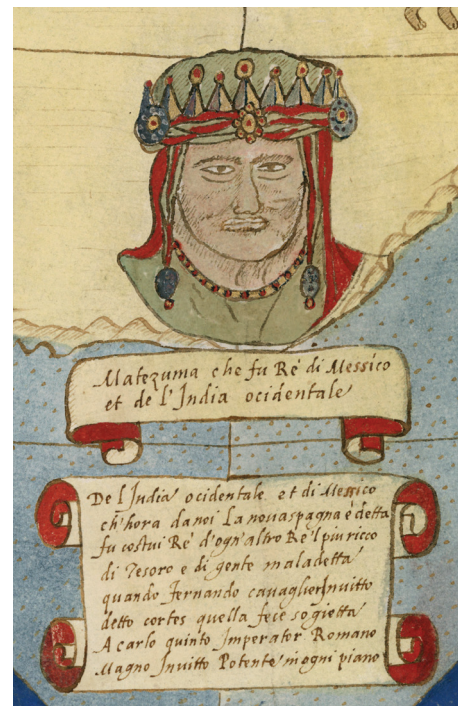 Matezuma che fu Re' di Messico
et de l'India ocidentale
De l'India ocidentale et di Messico
ch'hora da noi la novaspagna è detta
fu costui Re' d'ogn'altro Re'l piu ricco
di Tesoro e di gente maladetta
quando fernando cavaglier Invitto
detto cortes quella fece sogietta
A carlo quinto Imperator Romano
Magno Invitto Potente in ogni piano